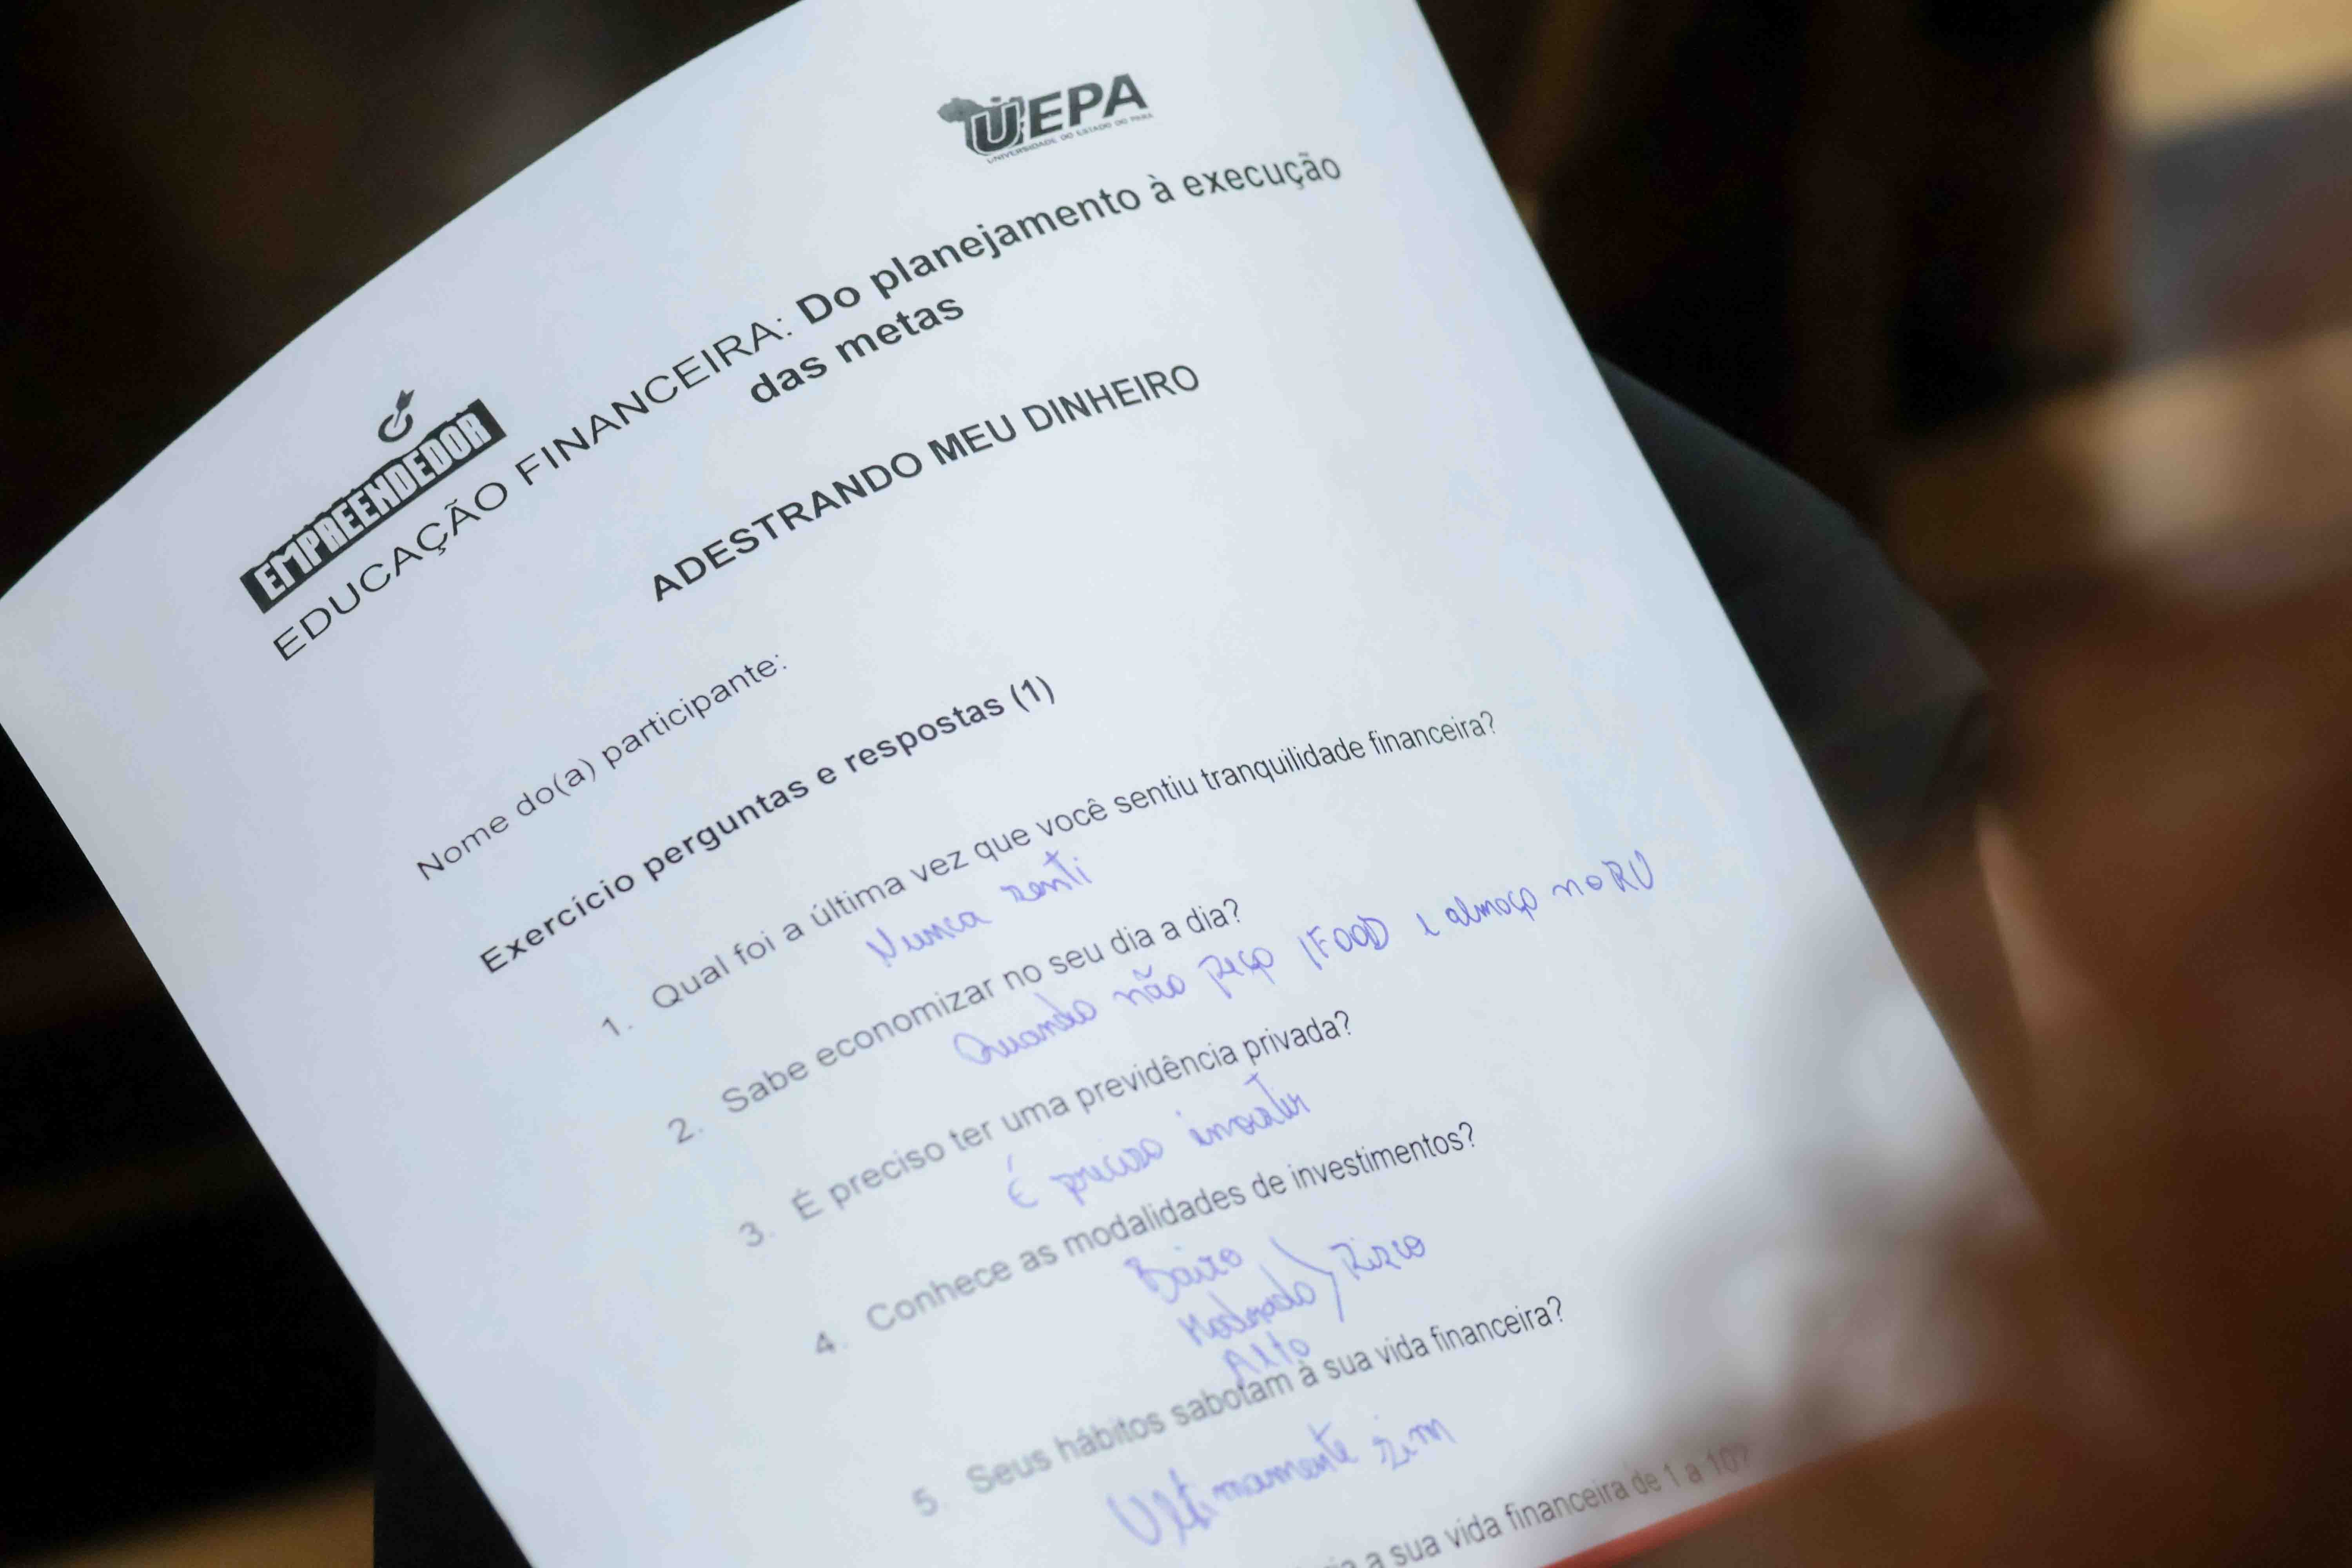 UEPA
UNIVERSIDADE DO ESTADO DO PARÁ
EMPREENDEDOR
EDUCAÇÃO FINANCEIRA: Do planejamento à execução
das metas
ADESTRANDO MEU DINHEIRO
Nome do(a) participante:
Exercício perguntas e respostas (1)
1. Qual foi a última vez que você sentiu tranquilidade financeira?
Nunca senti
2. Sabe economizar no seu dia a dia?
Quando não peço IFOOD e almoço no RU
3. É preciso ter uma previdência privada?
É preciso investir
4. Conhece as modalidades de investimentos?
Baixo
Moderado } Risco
Alto
5. Seus hábitos sabotam à sua vida financeira?
Ultimamente sim
a sua vida financeira de 1 a 10?